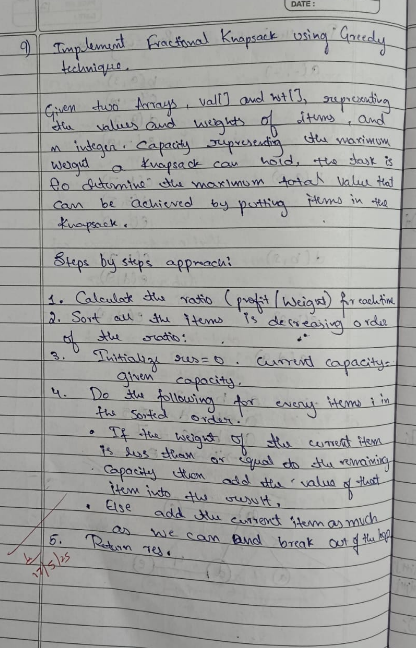 DATE :
9) Implement Fractional Knapsack using Greedy
technique.
Given two Arrays, val[] and wt[], representing
the values and weights of items, and
n integer. Capacity representing the maximum
weight a knapsack can hold, the task is
to determine the maximum total value that
can be achieved by putting items in the
Knapsack.
Steps by steps approach:
1. Calculate the ratio (profit/Weight) for each item
2. Sort all the items is decreasing order
of the ratio:
3. Initialize res=0. current capacity=
given capacity.
4. Do the following for every items i in
the sorted order.
• If the weight of the current item
is less than or equal to the remaining
capacity then add the value of that
item into the result.
• Else add the current item as much
as we can and break out of the loop
5. Return res.
17/5/25